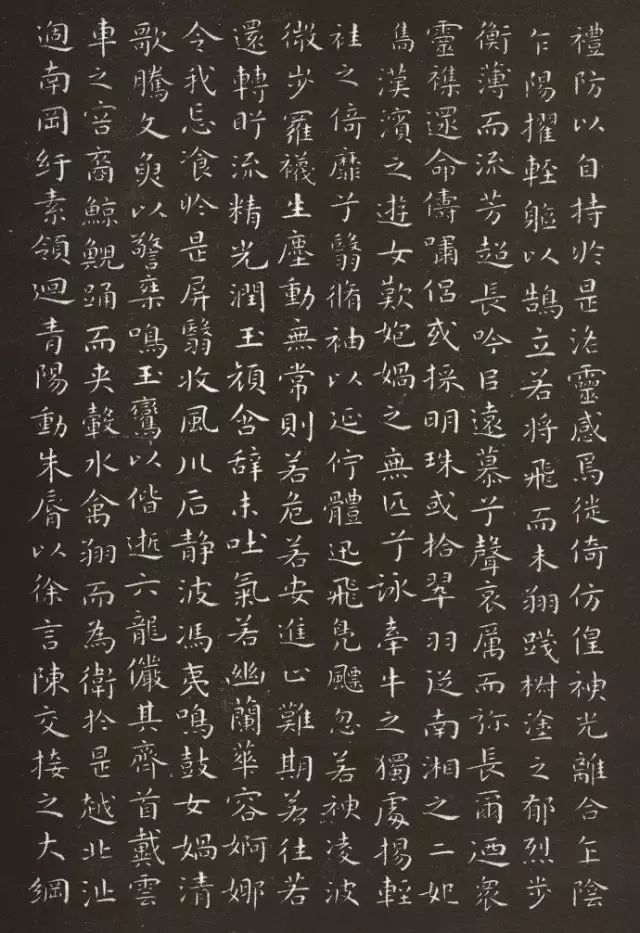 禮防以自持於是洛靈感焉徙倚仿偟神光離合乍陰
乍陽擢輕軀以鵠立若將飛而未翔踐椒塗之郁烈步
衡薄而流芳超長吟以遠慕兮聲哀厲而彌長爾迺衆
靈襍遝命儔嘯侶或採明珠或拾翠羽從南湘之二妃
雋漢濱之遊女歎㚿媧之無匹兮詠牽牛之獨處揚輕
袿之倚靡兮翳脩袖以延佇體迅飛鳧飄忽若神凌波
微步羅襪生塵動無常則若危若安進止難期若往若
還轉眄流精光潤玉顏含辭未吐氣若幽蘭華容婀娜
令我忘飡於是屏翳收風川后静波馮夷鳴鼓女媧清
歌騰文魚以警乘鳴玉鸞以偕逝六龍儼其齊首戴雲
車之容裔鯨鯢踊而夾轂水禽翔而為衛於是越北沚
過南岡紆素領迴青陽動朱脣以徐言陳交接之大綱